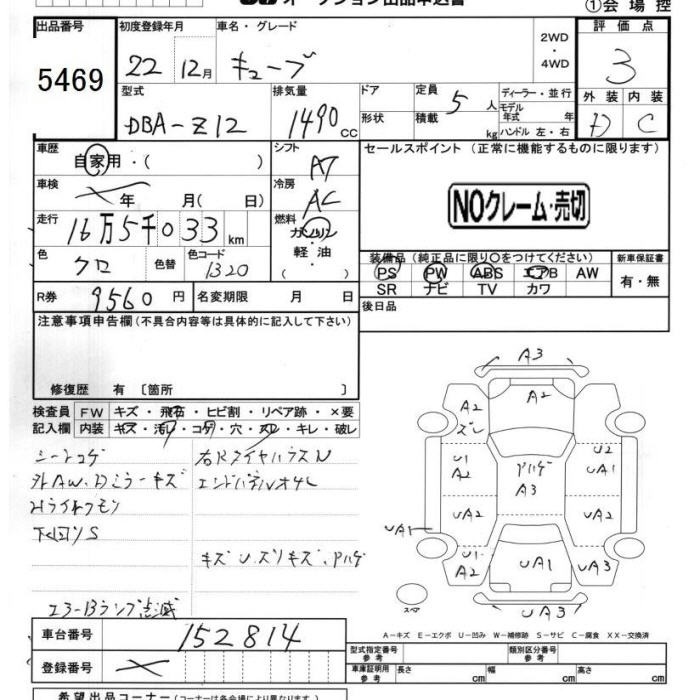 オークション出品申込書
①会場控
出品番号 初度登録年月 車名・グレード 2WD・4WD 評価点
5469 22 12月 キューブ 3
型式 排気量 ドア 定員 ディーラー・並行 外装 内装
DBA-Z12 1490cc 形状 積載 5人 kg モデル年式 年 ハンドル 左・右 D C
車歴 自家用・( ) シフト AT セールスポイント (正常に機能するものに限ります)
車検 年 月(日) 冷房 AC NOクレーム・売切
走行 16万5千033km 燃料 ガソリン・軽油・( )
色 クロ 色替 色コード 1320 装備品 (純正品に限り○をつけてください) 新車保証書
PS PW ABS エアB AW 有・無
SR ナビ TV カワ
R券 9560円 名変期限 月 日 後日品
注意事項申告欄 (不具合内容等は具体的に記入して下さい)
修復歴 有 〔箇所 〕
検査員 FW キズ・飛石・ヒビ割・リペア跡・×要
記入欄 内装 キズ・汚レ・コゲ・穴・スレ・キレ・破レ
シートコゲ
外AW、Dミラーキズ
Hライトクモリ
下回リS
エラーBランプ点滅
右Rタイヤハウス
キズU、スリキズ、Pハゲ
A3
A2 A2
ズレ
U1 A2 Pハゲ A3 U2 UA1
UA2 UA2
UA1
U1 A2 UA1 UA3
スペア UA3
A-キズ E-エクボ U-凹み W-補修跡 S-サビ C-腐食 XX-交換済
車台番号 152814
登録番号
型式指定番号 参考 類別区分番号 参考
車庫証明用 参考 長さ cm 幅 cm 高さ cm
希望出品コーナー (コーナーは各会場により異なります。)